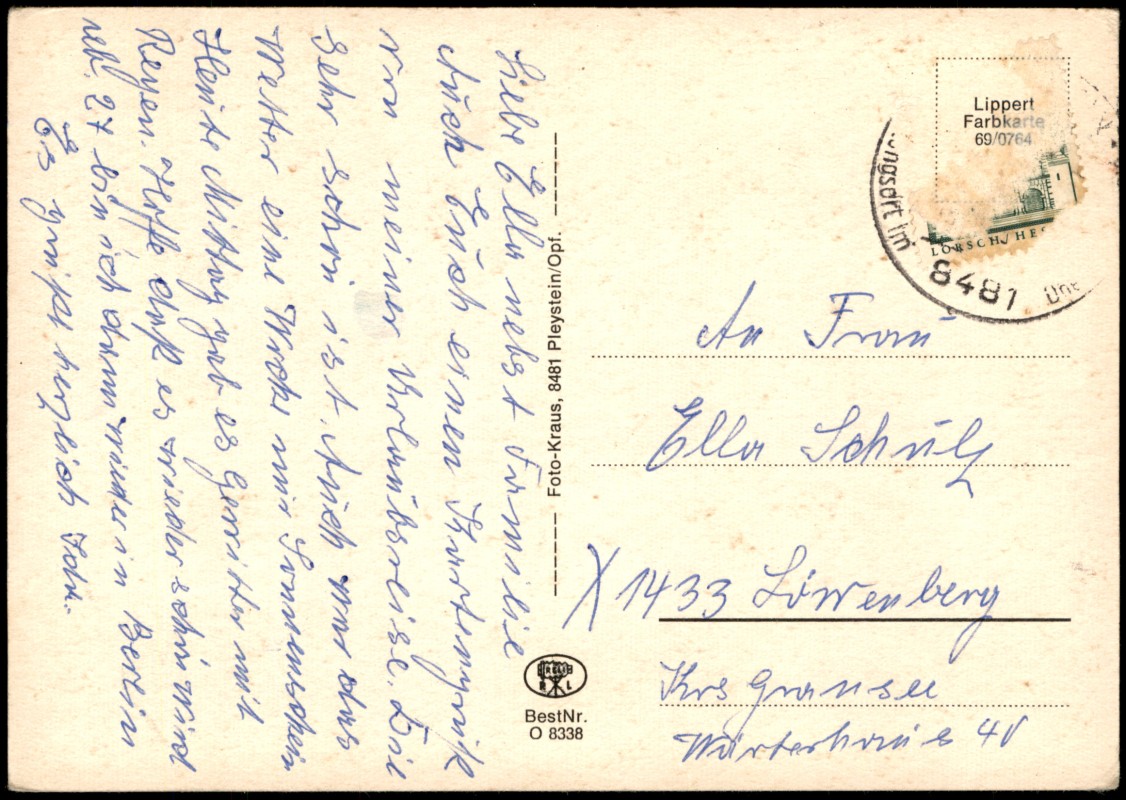 Liebe Ella nebst Familie
Auch Euch einen Kartengruß
von meiner Urlaubsreise. Die
sehr schön ist. Auch war das
Wetter eine Woche nur Sonnenschein
Heute Mittag gab es Gewitter mit
Regen. Hoffe daß es wieder schön wird
27 bin ich dann wieder in Berlin
Es grüßt herzlich
Foto-Kraus, 8481 Pleystein/Opf.
BestNr.
O 8338
Lippert
Farbkarte
69/0764
LORSCH/HES
ungsort im
8481
An Frau
Ella Schulz
X 1433 Löwenberg
Krs Gransee
Wärterhaus 40